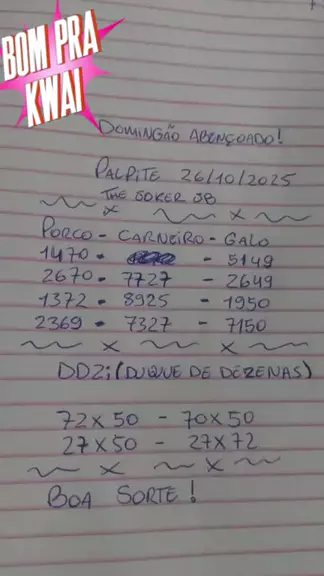 BOM PRA
KWAI
DOMINGÃO ABENÇOADO!
PALPITE 26/10/2025
THE JOKER JB
x x
PORCO - CARNEIRO - GALO
1470 - - 5149
2670 - 7727 - 2649
1372 - 8925 - 1950
2369 - 7327 - 7150
x x
DDZ; (DUQUE DE DEZENAS)
72X50 - 70X50
27X50 - 27X72
x x
BOA SORTE!